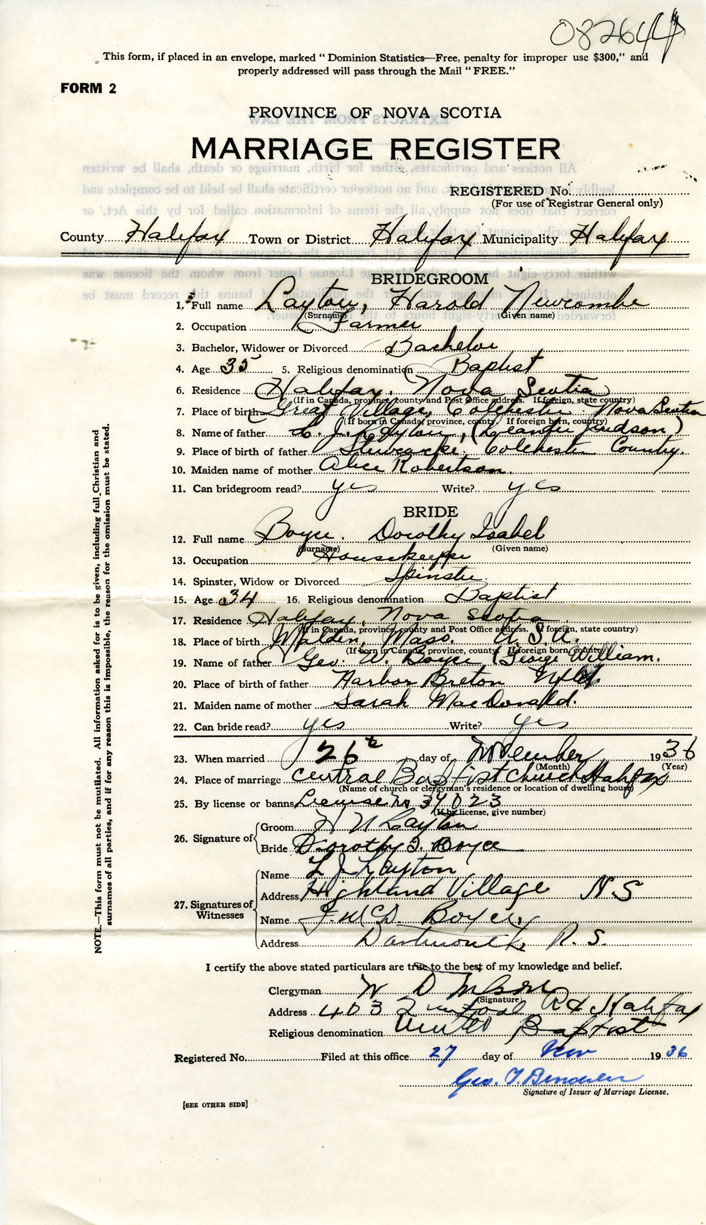 082644
This form, if placed in an envelope, marked "Dominion Statistics—Free, penalty for improper use $300," and
properly addressed will pass through the Mail "FREE."
FORM 2
PROVINCE OF NOVA SCOTIA
MARRIAGE REGISTER
REGISTERED No.
(For use of Registrar General only)
County Halifax Town or District Halifax Municipality Halifax
BRIDEGROOM
1. Full name Layton, Harold Newcombe
(Surname) (Given name)
2. Occupation Farmer
3. Bachelor, Widower or Divorced Bachelor
4. Age 35 5. Religious denomination Baptist
6. Residence Halifax, Nova Scotia
(If in Canada, province, county and Post Office address. If foreign, state country)
7. Place of birth Great Village, Colchester Nova Scotia
(If born in Canada, province, county. If foreign born, country)
8. Name of father L. J. Layton, (Leander Judson)
9. Place of father Colchester County.
10. Maiden name of mother Alice Robertson
11. Can bridegroom read? yes Write? yes
BRIDE
12. Full name Boyce. Dorothy Isabel
(Surname) (Given name)
13. Occupation Housekeeper
14. Spinster, Widow or Divorced Spinster
15. Age 34 16. Religious denomination Baptist
17. Residence Halifax, Nova Scotia
(If in Canada, province, county and Post Office address. If foreign, state country)
18. Place of birth Malden, Mass. U.S.A.
(If born in Canada, province, county. If foreign born, country)
19. Name of father Geo. W. Boyce (George William.
20. Place of birth of father Harbor Breton Nfld
21. Maiden name of mother Sarah MacDonald.
22. Can bride read? yes Write? yes
23. When married 26th day of November 1936
(Month) (Year)
24. Place of marriage Central Baptist Church Halifax
(Name of church or clergyman's residence or location of dwelling house)
25. By license or banns License No 34023
(If by license, give number)
26. Signature of Groom H N Layton
Bride Dorothy I. Boyce
27. Signatures of Witnesses Name L J Layton
Address Highland Village N S
Name Boyce,
Address Dartmouth, N. S.
I certify the above stated particulars are true to the best of my knowledge and belief.
Clergyman W D
(Signature)
Address 403 Rd Halifax
Religious denomination United Baptist
Registered No. Filed at this office 27 day of Nov 1936
Geo.
Signature of Issuer of Marriage License.
[SEE OTHER SIDE]
NOTE.—This form must not be mutilated. All information asked for is to be given, including full Christian and
surnames of all parties, and if for any reason this is impossible, the reason for the omission must be stated.